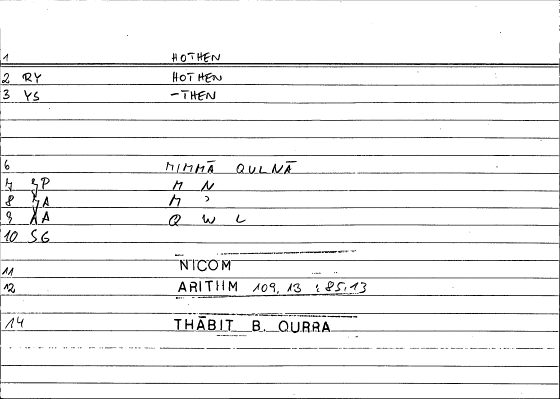 1 HOTHEN
2 RY HOTHEN
3 YS -THEN
6 MIMMĀ QULNĀ
7 ʒP M N
8 M ʾ
9 Q W L
10 SG
11 NICOM
12 ARITHM 109,13 : 85,13
14 THĀBIT B. QURRA